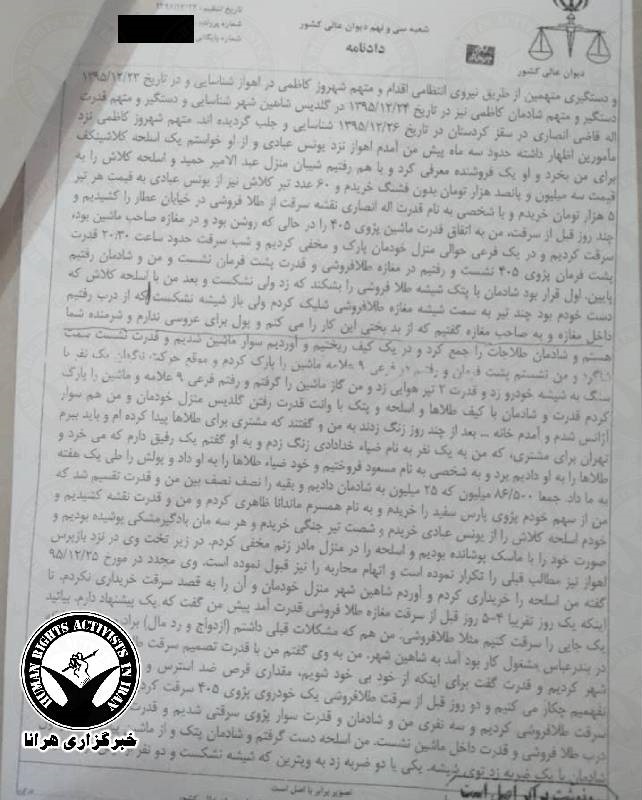 تاریخ تنظیم:
شماره پرونده:
شماره بایگانی
شعبه سی و نهم دیوان عالی کشور
دادنامه
دیوان عالی کشور
و دستگیری متهمین از طریق نیروی انتظامی اقدام و متهم شهروز کاظمی در اهواز شناسایی و در تاریخ ۱۳۹۵/۱۲/۲۳
دستگیر و متهم شادمان کاظمی نیز در تاریخ ۱۳۹۵/۱۲/۲۴ در گلدیس شاهین شهر شناسایی و دستگیر و متهم قدرت
اله قاضی انصاری در سقز کردستان در تاریخ ۱۳۹۵/۱۲/۲۶ شناسایی و جلب گردیده اند. متهم شهروز کاظمی نزد
مأمورین اظهار داشته حدود سه ماه پیش من آمدم اهواز نزد یونس عبادی و از او خواستم یک اسلحه کلاشینکف
برای من بخرد و او یک فروشنده معرفی کرد و با هم رفتیم شیبان منزل عبد الامیر حمید و اسلحه کلاش را به
قیمت سه میلیون و پانصد هزار تومان بدون فشنگ خریدم و ۶۰ عدد تیر کلاش نیز از یونس عبادی به قیمت هر تیر
۵ هزار تومان خریدم و با شخصی به نام قدرت اله انصاری نقشه سرقت از طلا فروشی در خیابان عطار را کشیدیم و
چند روز قبل از سرقت، من به اتفاق قدرت ماشین پژوی ۴۰۵ را در حالی که روشن بود و در مغازه صاحب ماشین بود،
سرقت کردیم و در یک فرعی حوالی منزل خودمان پارک و مخفی کردیم و شب سرقت حدود ساعت ۲۰/۳۰ قدرت
پشت فرمان پژوی ۴۰۵ نشست و رفتیم در مغازه طلافروشی و قدرت پشت فرمان نشست و من و شادمان رفتیم
پایین. اول قرار بود شادمان با پتک شیشه طلا فروشی را بشکند که زد ولی نشکست و بعد من با اسلحه کلاش که
دست خودم بود چند تیر به سمت شیشه مغازه طلافروشی شلیک کردم ولی باز شیشه نشکست که از درب رفتیم
داخل مغازه و به صاحب مغازه گفتیم که از بد بختی این کار را می کنم و پول برای عروسی ندارم و شرمنده شما
هستم و شادمان طلاجات را جمع کرد و در یک کیف ریختیم و آوردیم سوار ماشین شدیم و قدرت نشست سمت
شاگرد و من نشستم پشت فرمان و رفتیم در فرعی ۹ علامه ماشین را پارک کردم و موقع حرکت ناگهان یک نفر با
سنگ به شیشه خودرو زد و قدرت ۲ تیر هوایی زد و من گاز ماشین را گرفتم و رفتم فرعی ۹ علامه و ماشین را پارک
کردم قدرت و شادمان با کیف طلاها و اسلحه و پتک با وانت قدرت رفتن گلدیس منزل خودمان و من هم سوار
آژانس شدم و آمدم خانه ... بعد از چند روز زنگ زدند به من و گفتند که مشتری برای طلاها پیدا کرده ام و باید ببرم
تهران برای مشتری، که من به یک نفر به نام ضیاء خدادادی زنگ زدم و به او گفتم یک رفیق دارم که می خرد و
طلاها را به او دادیم برد و به شخصی به نام مسعود فروختیم و خود ضیاء طلاها را به او داد و پولش را طی یک هفته
به ما داد. جمعا ۸۶/۵۰۰ میلیون که ۲۵ میلیون به شادمان دادیم و بقیه را نصف نصف بین من و قدرت تقسیم شد که
من از سهم خودم پژوی پارس سفید را خریدم و به نام همسرم ماندانا طاهری کردم و من و قدرت نقشه کشیدیم و
خودم اسلحه کلاش را از یونس عبادی خریدم و شصت تیر جنگی خریدم و هر سه مان بادگیرمشکی پوشیده بودیم و
صورت خود را با ماسک پوشانده بودیم و اسلحه را در منزل مادر زنم مخفی کردم. در زیر تخت وی در نزد بازپرس
اهواز نیز مطالب قبلی را تکرار نموده است و اتهام محاربه را نیز قبول نموده است. وی مجدد در مورخ ۹۵/۱۲/۲۵
گفته من اسلحه را خریداری کردم و آوردم شاهین شهر منزل خودمان و آن را به قصد سرقت خریداری نکردم. تا
اینکه یک روز تقریبا ۴-۵ روز قبل از سرقت مغازه طلا فروشی قدرت آمد پیش من گفت که یک پیشنهاد دارم. بیائید
یک جایی را سرقت کنیم مثلا طلافروشی. من هم که مشکلات قبلی داشتم (ازدواج و رد مال) برادر
در بندرعباس مشغول کار بود آمد به شاهین شهر. من به وی گفتم من با قدرت تصمیم سرقت
شهر کردیم و قدرت گفت برای اینکه از خود بی خود شویم، مقداری قرص ضد استرس و
نفهمیم چکار می کنیم و دو روز قبل از سرقت طلافروشی یک خودروی پژوی ۴۰۵ سرقت کردیم
سرقت طلافروشی کردیم و سه نفری من و شادمان و قدرت سوار پژوی سرقتی شدیم و قدرت
درب طلا فروشی و قدرت داخل ماشین نشست. من اسلحه دست گرفتم و شادمان پتک و از ماشین
شادمان با یک ضربه زد توی شیشه. یکی یا دو ضربه زد به ویترین که شیشه نشکست و دو نفر
رونوشت برابر اصل است
تصویر برابر با اصل است
HUMAN RIGHTS ACTIVISTS IN IRAN
خبرگزاری هرانا